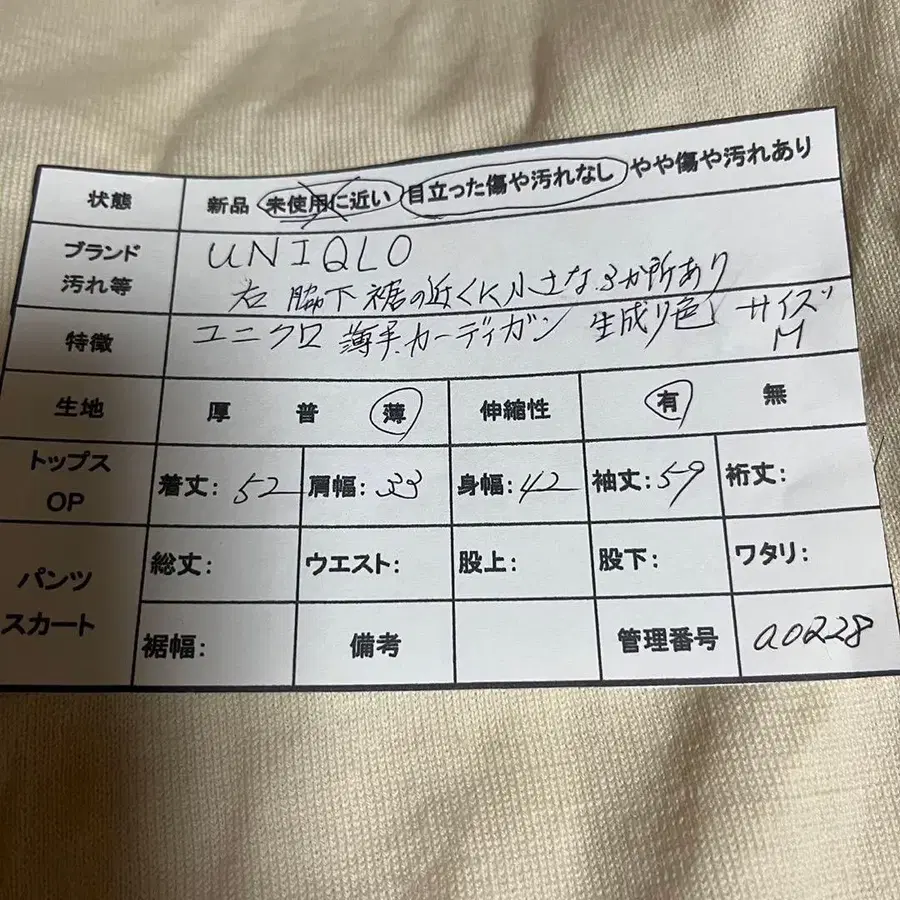 状態 新品 未使用に近い 目立った傷や汚れなし やや傷や汚れあり
ブランド UNIQLO
汚れ等 右 脇下 裾の近くに小さな3か所あり
特徴 ユニクロ 薄手カーディガン 生成り色 サイズ
M
生地 厚 普 薄 伸縮性 有 無
トップス
OP
着丈:52 肩幅:33 身幅:42 袖丈:59 裄丈:
パンツ
スカート
総丈: ウエスト: 股上: 股下: ワタリ:
裾幅: 備考 管理番号 a0228